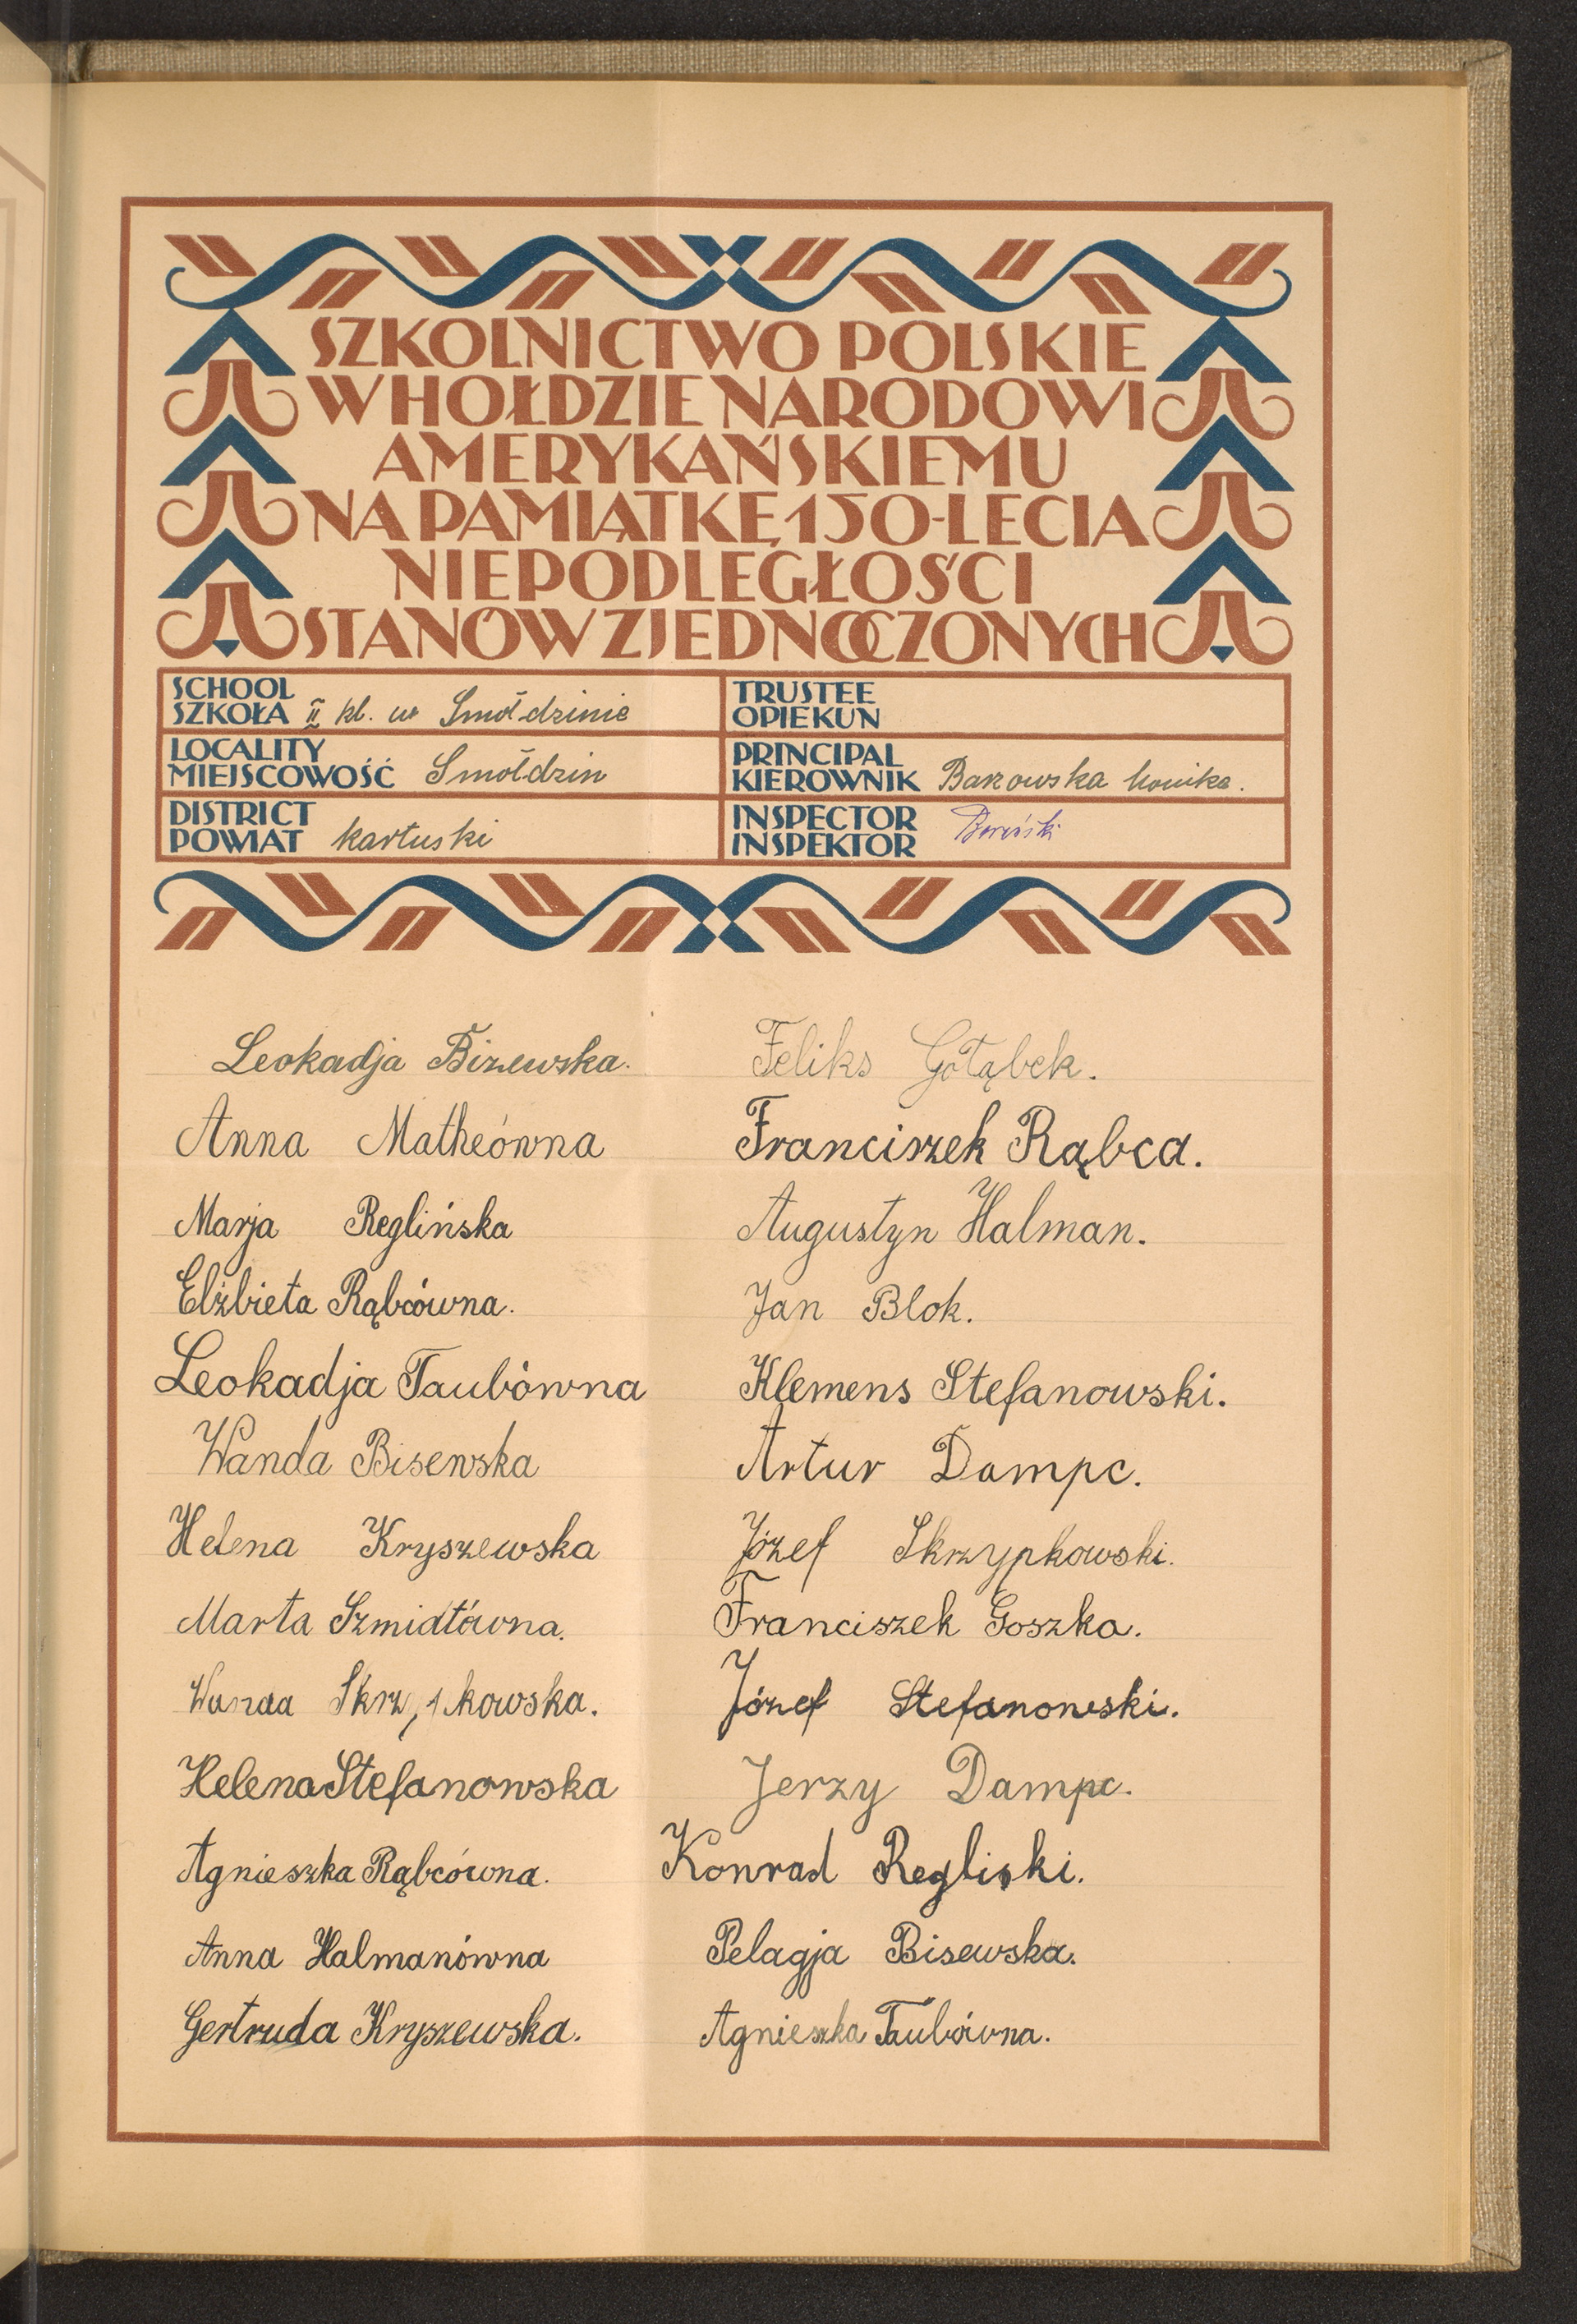 SZKOLNICTWO POLSKIE
W HOŁDZIE NARODOWI
AMERYKAŃSKIEMU
NA PAMIĄTKĘ 150-LECIA
NIEPODLEGŁOŚCI
STANÓW ZJEDNOCZONYCH
SCHOOL
SZKOŁA II kl. w Smołdzinie
TRUSTEE
OPIEKUN
LOCALITY
MIEJSCOWOŚĆ Smołdzin
PRINCIPAL
KIEROWNIK Barowska Monika.
DISTRICT
POWIAT kartuski
INSPECTOR
INSPEKTOR
Leokadja Bizewska.
Anna Matheówna
Marja Reglińska
Elżbieta Rąbcówna.
Leokadja Taubówna
Wanda Bisewska
Helena Kryszewska
Marta Szmidtówna.
Wanda
Helena Stefanowska
Agnieszka Rąbcówna.
Anna Halmanówna
Gertruda Kryszewska.
Feliks Gołąbek.
Franciszek Rąbca.
Augustyn Halman.
Jan Blok.
Klemens Stefanowski.
Artur Dampc.
Józef Skrzypkowski.
Franciszek Goszka.
Józef Stefanowski.
Jerzy Dampc.
Konrad Regliski.
Pelagja Bisewska.
Agnieszka Taubówna.